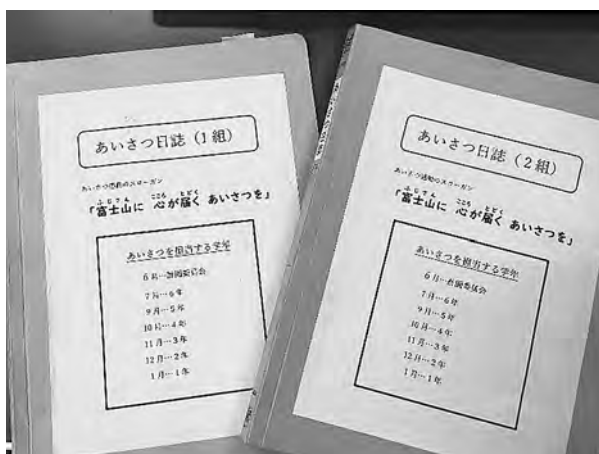 あいさつ日誌（1組）
あいさつ活動のスローガン
「富士山に 心が届く あいさつを」
あいさつを担当する学年
6月…計画委員会
7月…6年
9月…5年
10月…4年
11月…3年
12月…2年
1月…1年
あいさつ日誌（2組）
あいさつ活動のスローガン
「富士山に 心が届く あいさつを」
あいさつを担当する学年
6月…計画委員会
7月…6年
9月…5年
10月…4年
11月…3年
12月…2年
1月…1年